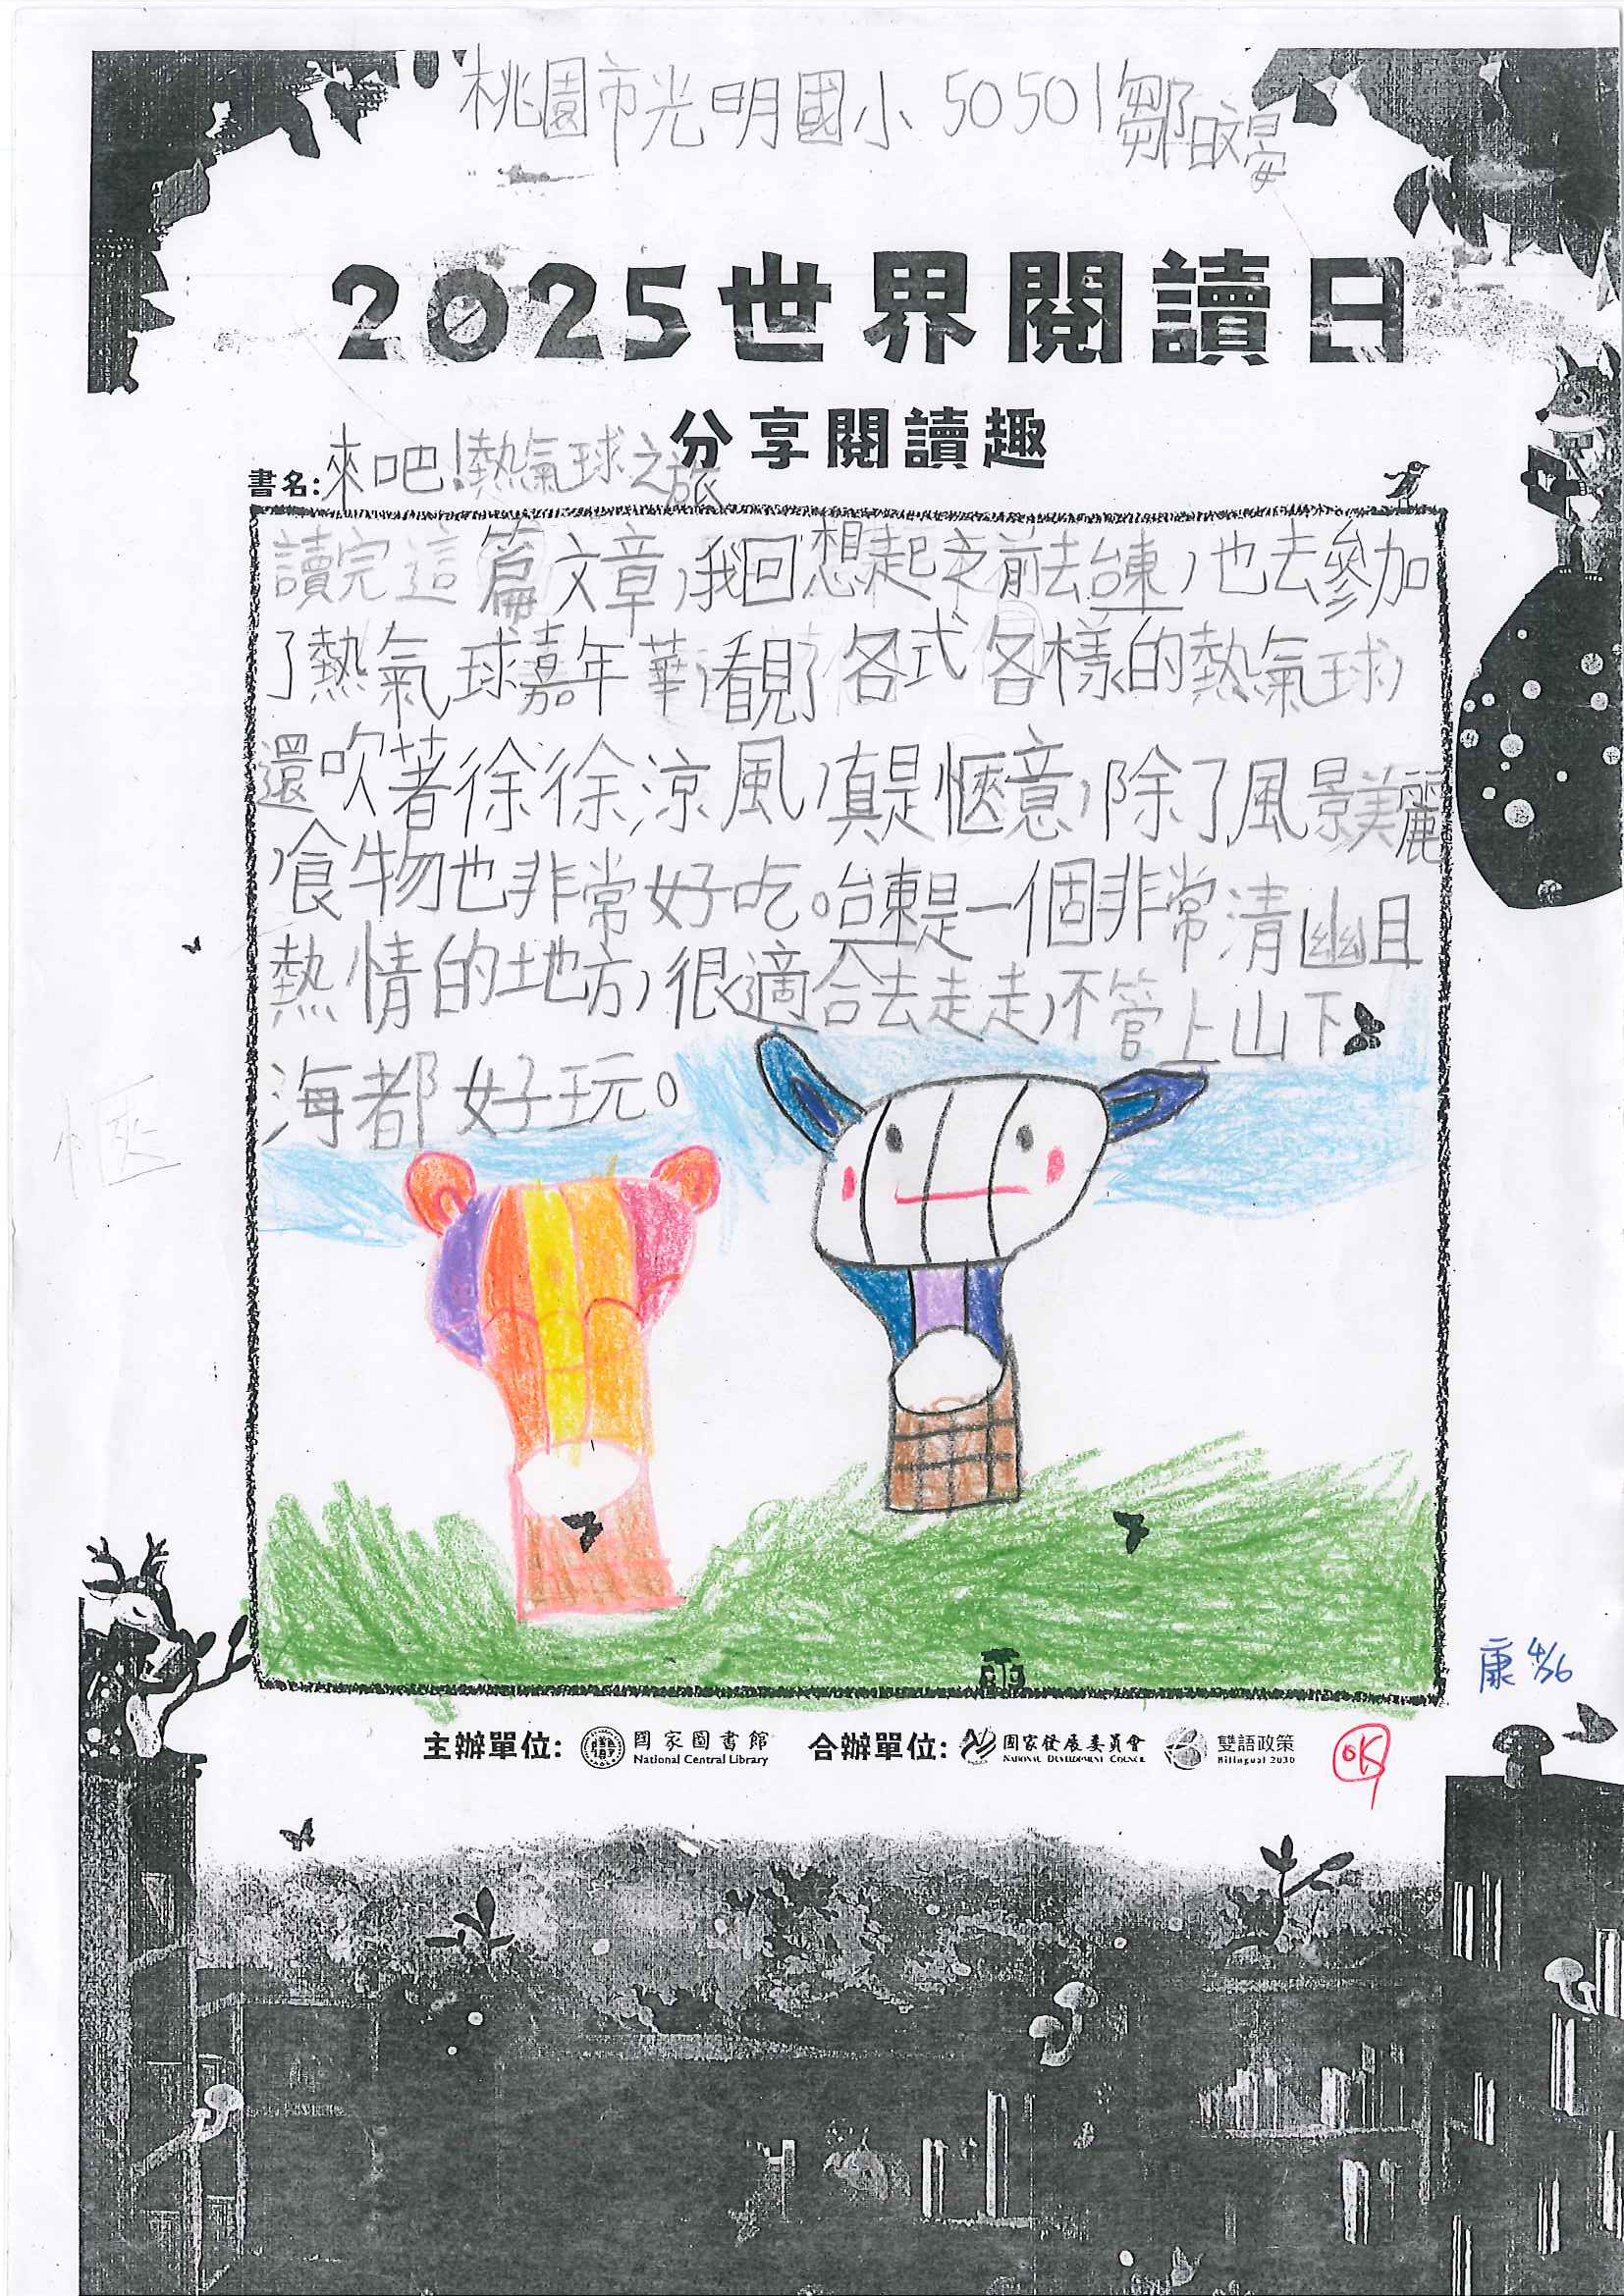 桃園市光明國小 50501 鄒旼晏
2025世界閱讀日
分享閱讀趣
書名:來吧!熱氣球之旅
讀完這篇文章,我回想起之前去台東,也去參加
了熱氣球嘉年華,看見了各式各樣的熱氣球,
還吹著徐徐涼風,真是愜意,除了風景美麗
,食物也非常好吃。台東是一個非常清幽且
熱情的地方,很適合去走走,不管上山下
海都好玩。
愜
康 4/26
主辦單位: 國家圖書館 National Central Library 合辦單位: 國家發展委員會 NATIONAL DEVELOPMENT COUNCIL 雙語政策 Bilingual 2030
OK